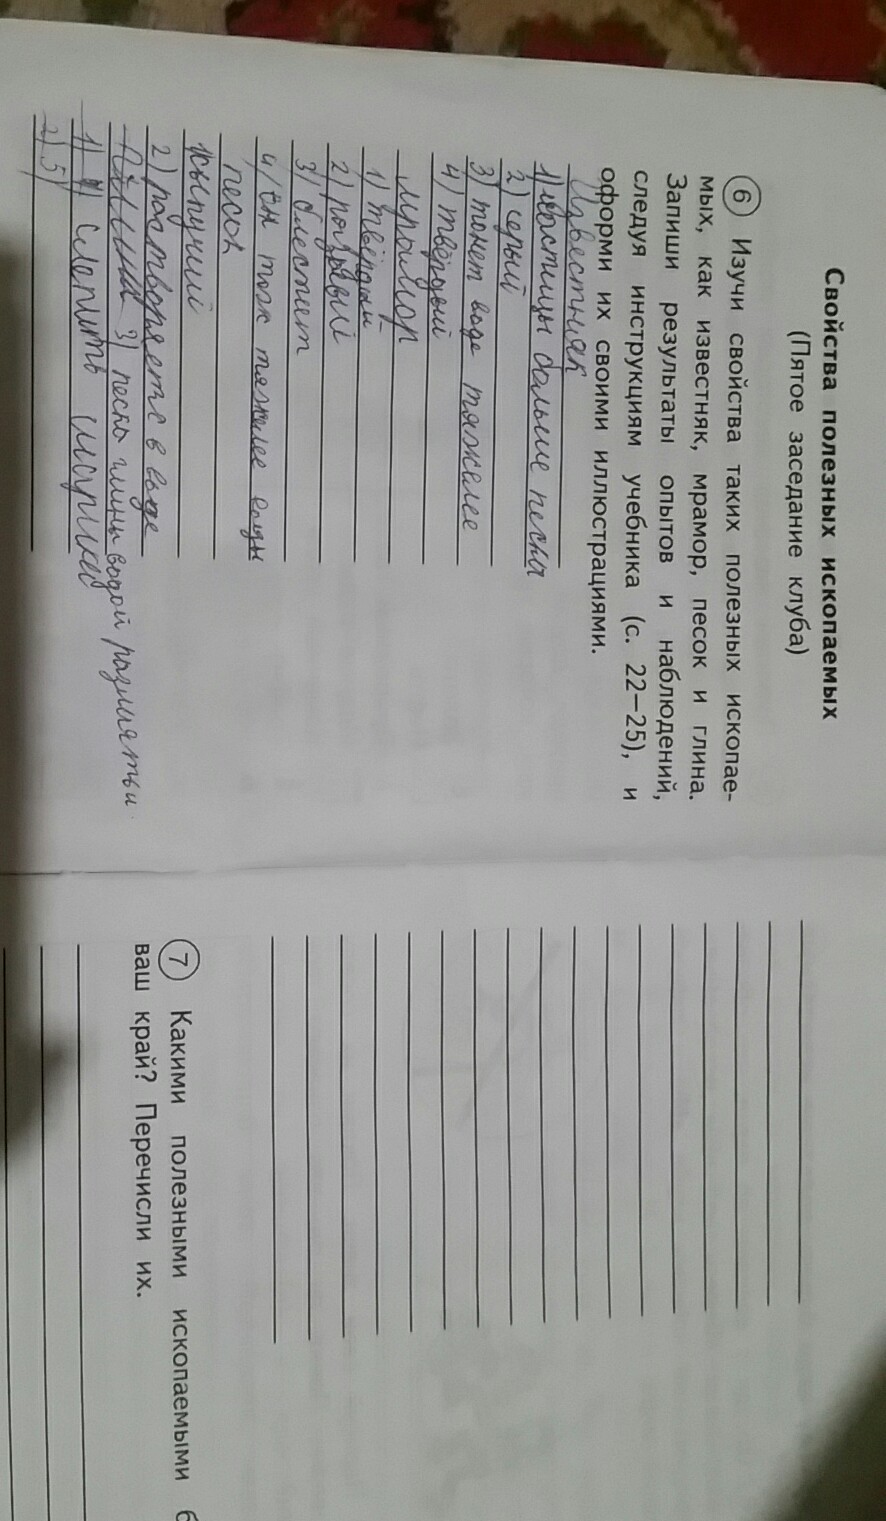 Свойства полезных ископаемых
(Пятое заседание клуба)
6 Изучи свойства таких полезных ископае-
мых, как известняк, мрамор, песок и глина.
Запиши результаты опытов и наблюдений,
следуя инструкциям учебника (с. 22—25), и
оформи их своими иллюстрациями.
Известняк
1) частицы больше песка
2) серый
3) тонет воде тяжелее
4) твёрдый
мрамор
1) твёрдый
2) розовый
3) блестит
4) он тож тяжелее воды
песок
сыпучий
2) растворяется в воде
3) песко глины водой
1) слепить шарики
2) 5)
7 Какими полезными ископаемыми б
ваш край? Перечисли их.